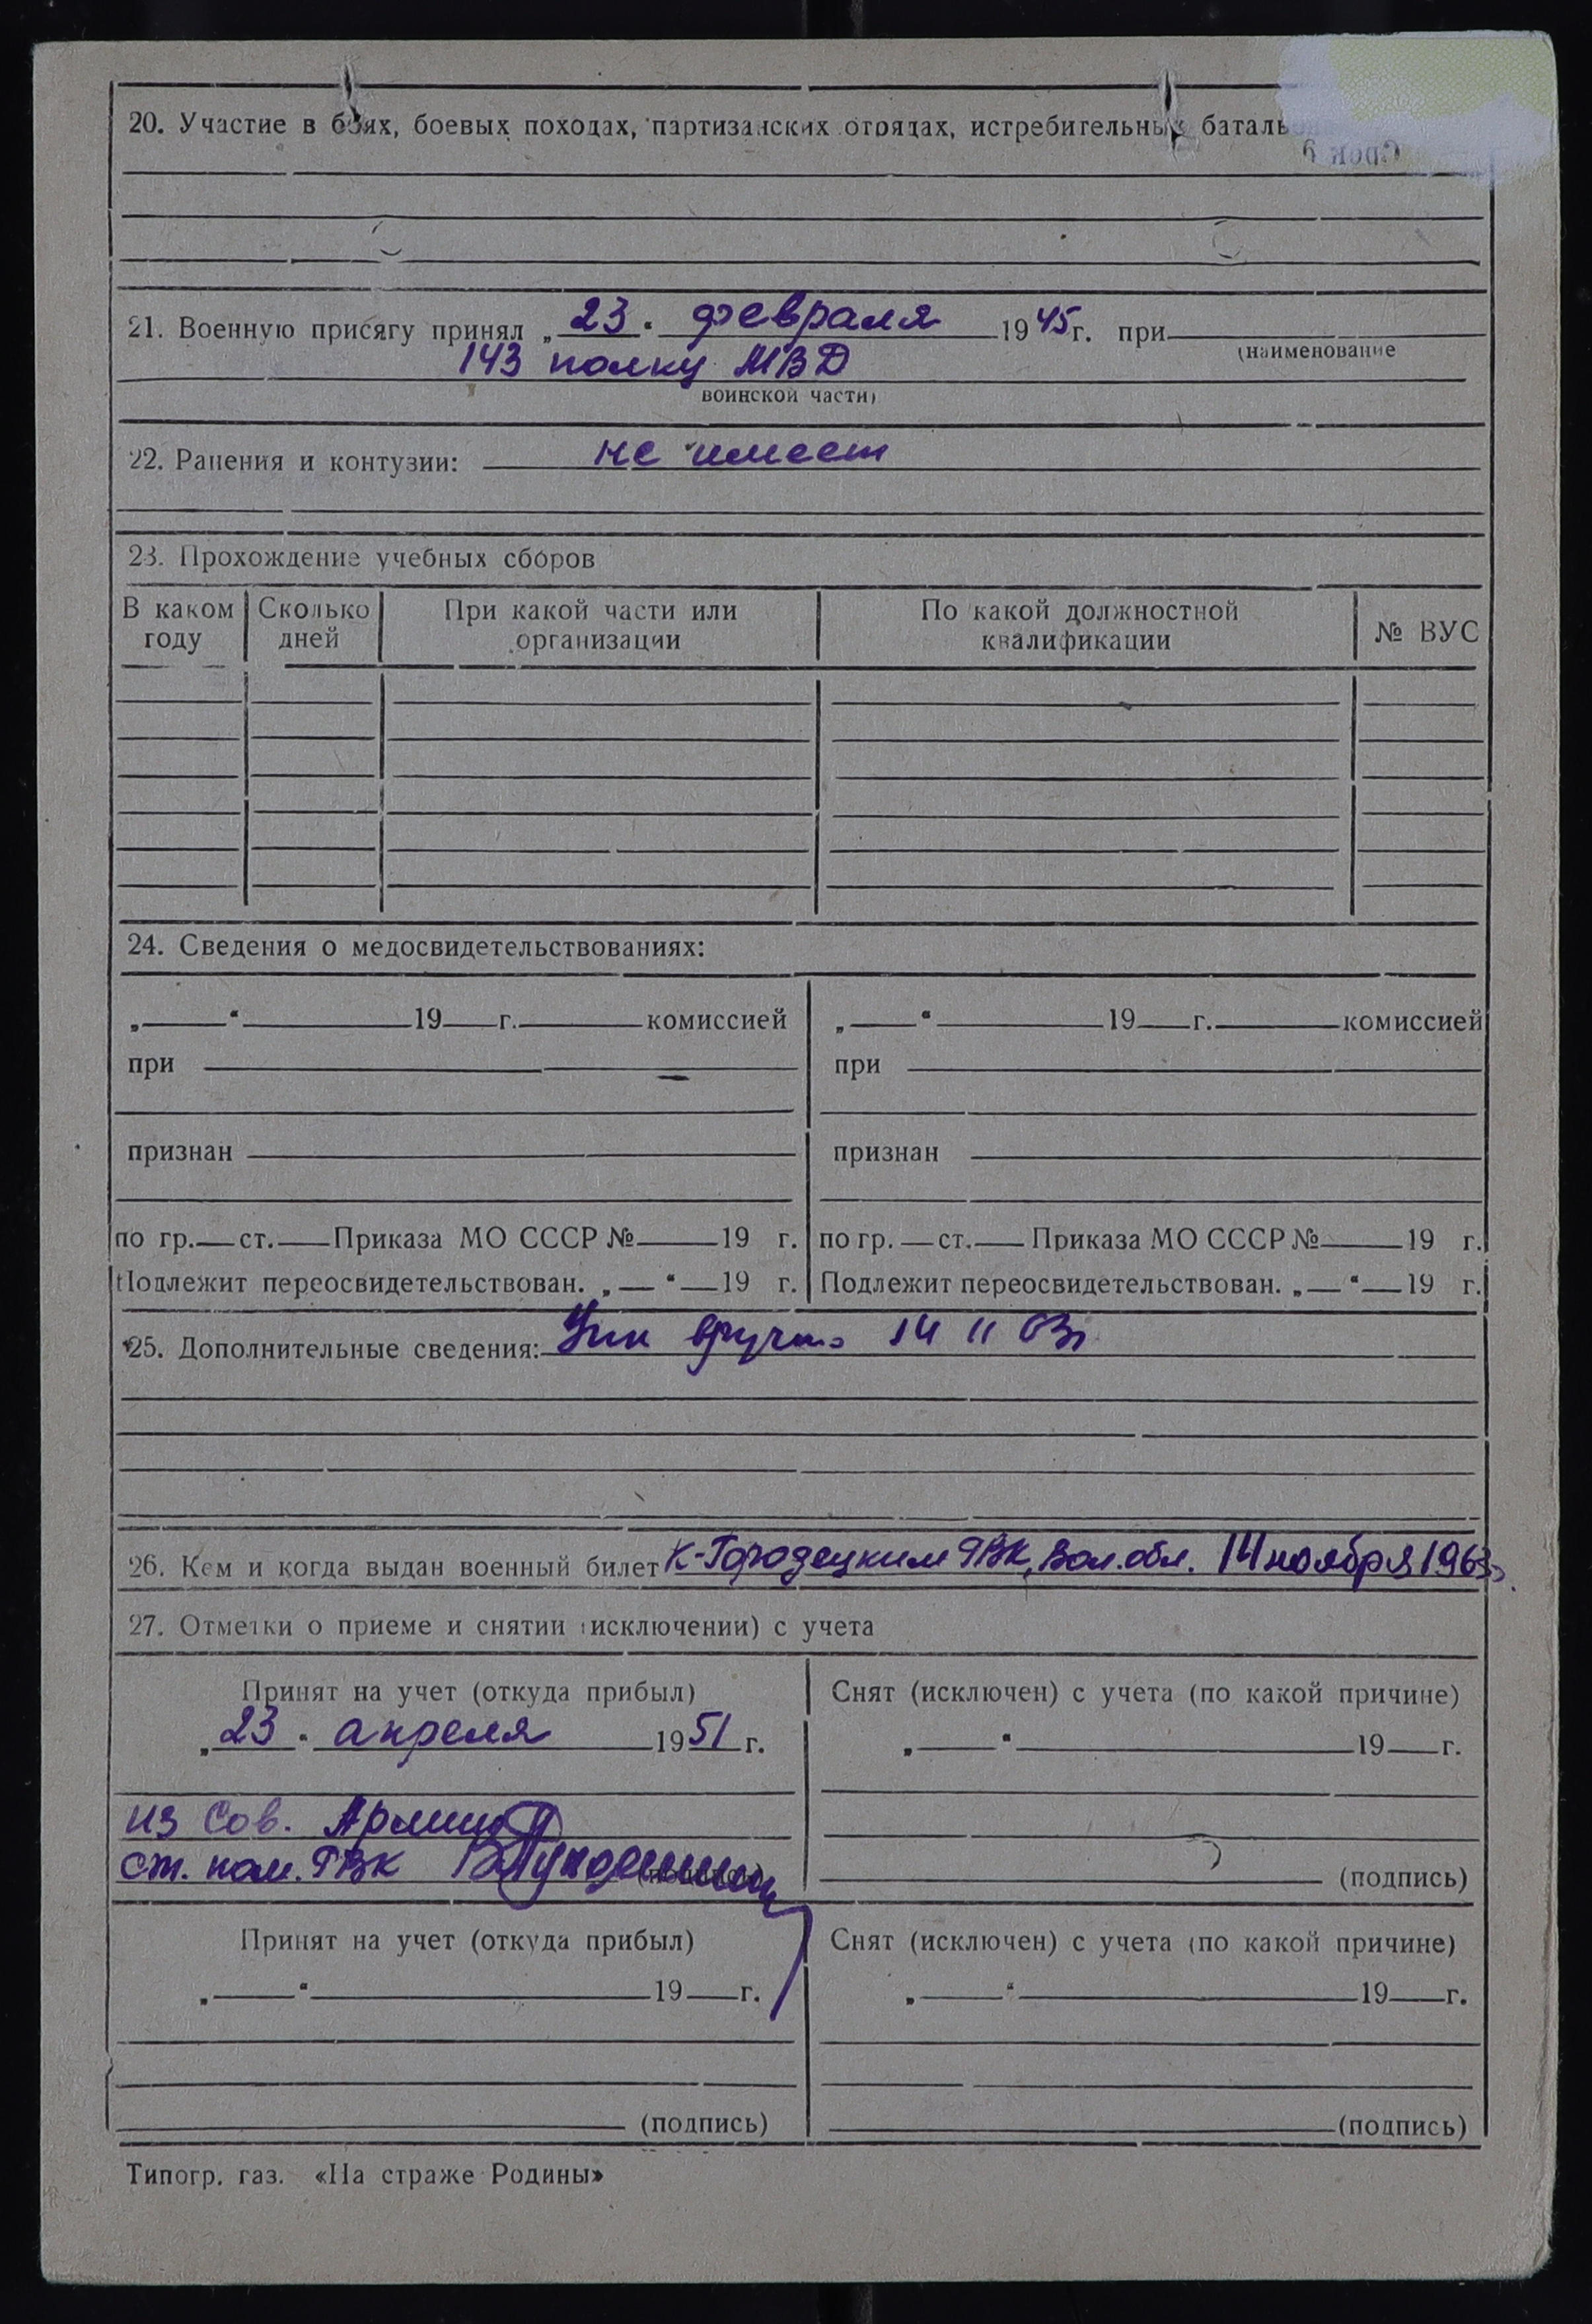 20. Участие в боях, боевых походах, партизанских отрядах, истребительных баталь
Срок
21. Военную присягу принял „23“ февраля 1945г. при
(наименование
143 полку МВД
воинской части)
22. Ранения и контузии: не имеет
23. Прохождение учебных сборов
В каком году Сколько дней При какой части или организации По какой должностной квалификации № ВУС
24. Сведения о медосвидетельствованиях:
„ “ 19 г. комиссией „ “ 19 г. комиссией
при при
признан признан
по гр. ст. Приказа МО СССР № 19 г. по гр. ст. Приказа МО СССР № 19 г.
Подлежит переосвидетельствован. „ “ 19 г. Подлежит переосвидетельствован. „ “ 19 г.
25. Дополнительные сведения: 14 11 63г
26. Кем и когда выдан военный билет К-Городецким РВК, Вол. обл. 14 ноября 1963г.
27. Отметки о приеме и снятии (исключении) с учета
Принят на учет (откуда прибыл) Снят (исключен) с учета (по какой причине)
„23“ апреля 1951 г. „ “ 19 г.
из Сов. Армии
ст. пом. РВК (подпись) (подпись)
Принят на учет (откуда прибыл) Снят (исключен) с учета (по какой причине)
„ “ 19 г. „ “ 19 г.
(подпись) (подпись)
Типогр. газ. «На страже Родины»